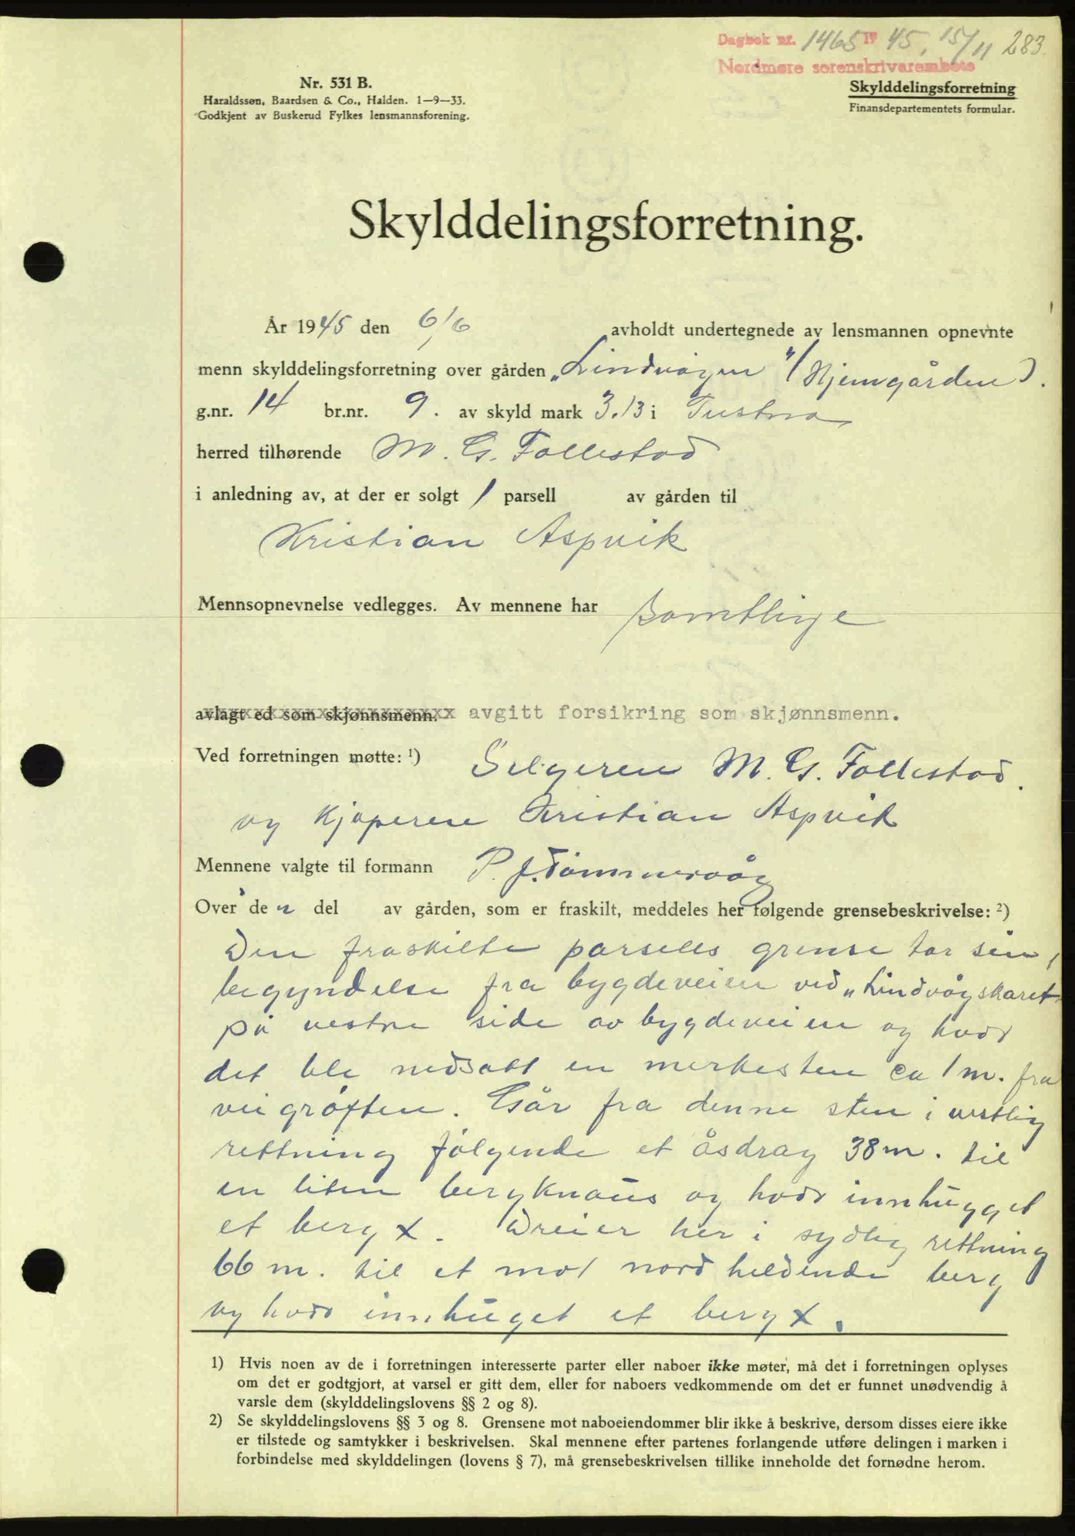 Dagbok nr. 1465 19 45, 15/11 283.
Nordmøre sorenskrivarembete
Nr. 531 B.
Haraldssen, Baardsen & Co., Halden. 1—9—33.
Godkjent av Buskerud Fylkes lensmannsforening.
Skylddelingsforretning
Finansdepartementets formular.
Skylddelingsforretning.
År 1945 den 6/6 avholdt undertegnede av lensmannen opnevnte
menn skylddelingsforretning over gården „Lindvågen" (Hjemgården).
g.nr. 14 br.nr. 9. av skyld mark 3.13 i Tustna
herred tilhørende M. G. Follestad
i anledning av, at der er solgt 1 parsell av gården til
Kristian Aspvik
Mennsopnevnelse vedlegges. Av mennene har samtlige
avlagt ed som skjønnsmenn. avgitt forsikring som skjønnsmenn.
Ved forretningen møtte: ¹) Selgeren M. G. Follestad.
og kjøperen Kristian Aspvik
Mennene valgte til formann P. J. Tømmervåg
Over den del av gården, som er fraskilt, meddeles her følgende grensebeskrivelse: ²)
Den fraskilte parsells grense tar sin
begyndelse fra bygdeveien ved „Lindvågskaret
på vestre side av bygdeveien og hvor
det ble nedsatt en merkesten ca 1 m. fra
veigrøften. Går fra denne sten i vestlig
rettning følgende et åsdrag 38 m. til
en liten bergknaus og hvor innhugget
et berg x. Dreier her i sydlig rettning
66 m. til et mot nord heldende berg
og hvor innhuget et berg x.
1) Hvis noen av de i forretningen interesserte parter eller naboer ikke møter, må det i forretningen oplyses
om det er godtgjort, at varsel er gitt dem, eller for naboers vedkommende om det er funnet unødvendig å
varsle dem (skylddelingslovens §§ 2 og 8).
2) Se skylddelingslovens §§ 3 og 8. Grensene mot naboeiendommer blir ikke å beskrive, dersom disses eiere ikke
er tilstede og samtykker i beskrivelsen. Skal mennene efter partenes forlangende utføre delingen i marken i
forbindelse med skylddelingen (lovens § 7), må grensebeskrivelsen tillike inneholde det fornødne herom.